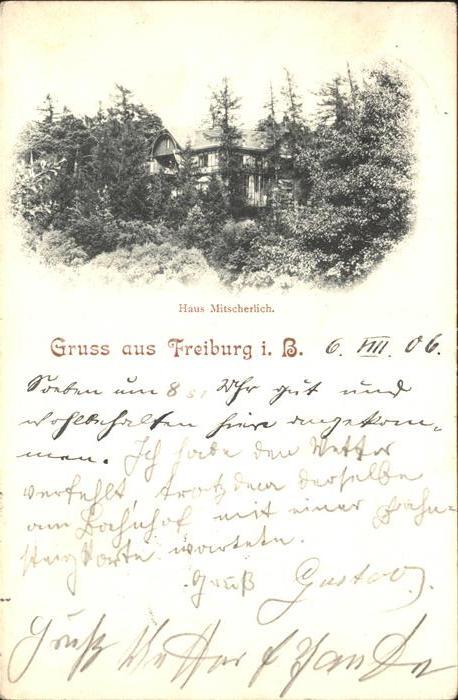 Haus Mitscherlich.
Gruss aus Freiburg i. B. 6. VIII. 06.
Soeben um 8 Uhr gut und
wohlbehalten hier angekom-
men. Ich habe den Vetter
verfehlt, trotzdem derselbe
am Bahnhof mit einer Bahn-
steigkarte wartete.
Gruß Gustav.
Gruß Vetter